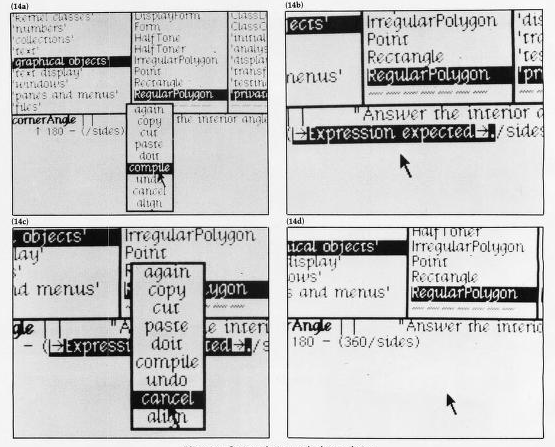 (14a)
'kernel classes'
'numbers'
'collections'
'text'
'graphical objects'
'text display'
'windows'
'panes and menus'
'files'
DisplayForm
Form
HalfToner
HalfToner
IrregularPolygon
Point
Rectangle
RegularPolygon
ClassC
'initial
'analys
'displa
'transf
'testin
'privat
cornerAngle | |
the interior angle
↑ 180 - (/sides)
again
copy
cut
paste
doit
compile
undo
cancel
align
(14b)
ects'
nenus'
IrregularPolygon
Point
Rectangle
RegularPolygon
'dis
'tra
'tes
'pri
| | "Answer the interior a
(|→Expression expected→./sides
(14c)
objects'
lay'
nd menus'
IrregularPolygon
Point
ygon
again
copy
cut
paste
doit
compile
undo
cancel
align
gle | | "A
e interi
- (|→Expressi
ted→./s
(14d)
ical objects'
display'
ows'
s and menus'
HalfToner
IrregularPolygon
Point
Rectangle
RegularPolygon
rAngle | | "Answer the interio
180 - (360/sides)